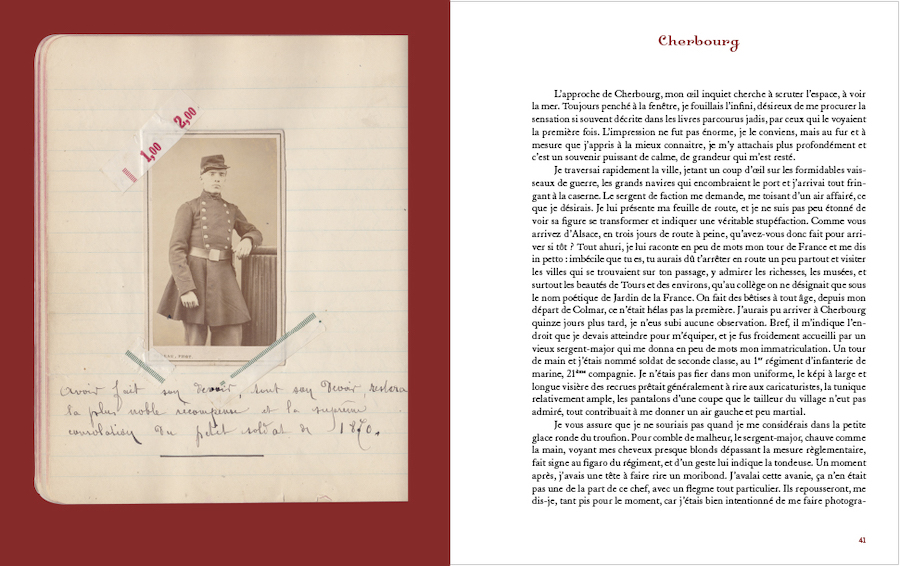 1,00
2,00
PHOT.
avoir fait son devoir, tout son devoir, restera
la plus noble récompense et la suprême
consolation du petit soldat de 1870.
Cherbourg
L'approche de Cherbourg, mon œil inquiet cherche à scruter l'espace, à voir
la mer. Toujours penché à la fenêtre, je fouillais l'infini, désireux de me procurer la
sensation si souvent décrite dans les livres parcourus jadis, par ceux qui le voyaient
la première fois. L'impression ne fut pas énorme, je le conviens, mais au fur et à
mesure que j'appris à la mieux connaitre, je m'y attachais plus profondément et
c'est un souvenir puissant de calme, de grandeur qui m'est resté.
Je traversai rapidement la ville, jetant un coup d'œil sur les formidables vais-
seaux de guerre, les grands navires qui encombraient le port et j'arrivai tout frin-
gant à la caserne. Le sergent de faction me demande, me toisant d'un air affairé, ce
que je désirais. Je lui présente ma feuille de route, et je ne suis pas peu étonné de
voir sa figure se transformer et indiquer une véritable stupéfaction. Comme vous
arrivez d'Alsace, en trois jours de route à peine, qu'avez-vous donc fait pour arri-
ver si tôt ? Tout ahuri, je lui raconte en peu de mots mon tour de France et me dis
in petto : imbécile que tu es, tu aurais dû t'arrêter en route un peu partout et visiter
les villes qui se trouvaient sur ton passage, y admirer les richesses, les musées, et
surtout les beautés de Tours et des environs, qu'au collège on ne désignait que sous
le nom poétique de Jardin de la France. On fait des bêtises à tout âge, depuis mon
départ de Colmar, ce n'était hélas pas la première. J'aurais pu arriver à Cherbourg
quinze jours plus tard, je n'eus subi aucune observation. Bref, il m'indique l'en-
droit que je devais atteindre pour m'équiper, et je fus froidement accueilli par un
vieux sergent-major qui me donna en peu de mots mon immatriculation. Un tour
de main et j'étais nommé soldat de seconde classe, au 1er régiment d'infanterie de
marine, 21ème compagnie. Je n'étais pas fier dans mon uniforme, le képi à large et
longue visière des recrues prêtait généralement à rire aux caricaturistes, la tunique
relativement ample, les pantalons d'une coupe que le tailleur du village n'eut pas
admiré, tout contribuait à me donner un air gauche et peu martial.
Je vous assure que je ne souriais pas quand je me considérais dans la petite
glace ronde du troufion. Pour comble de malheur, le sergent-major, chauve comme
la main, voyant mes cheveux presque blonds dépassant la mesure règlementaire,
fait signe au figaro du régiment, et d'un geste lui indique la tondeuse. Un moment
après, j'avais une tête à faire rire un moribond. J'avalai cette avanie, ça n'en était
pas une de la part de ce chef, avec un flegme tout particulier. Ils repousseront, me
dis-je, tant pis pour le moment, car j'étais bien intentionné de me faire photogra-
41